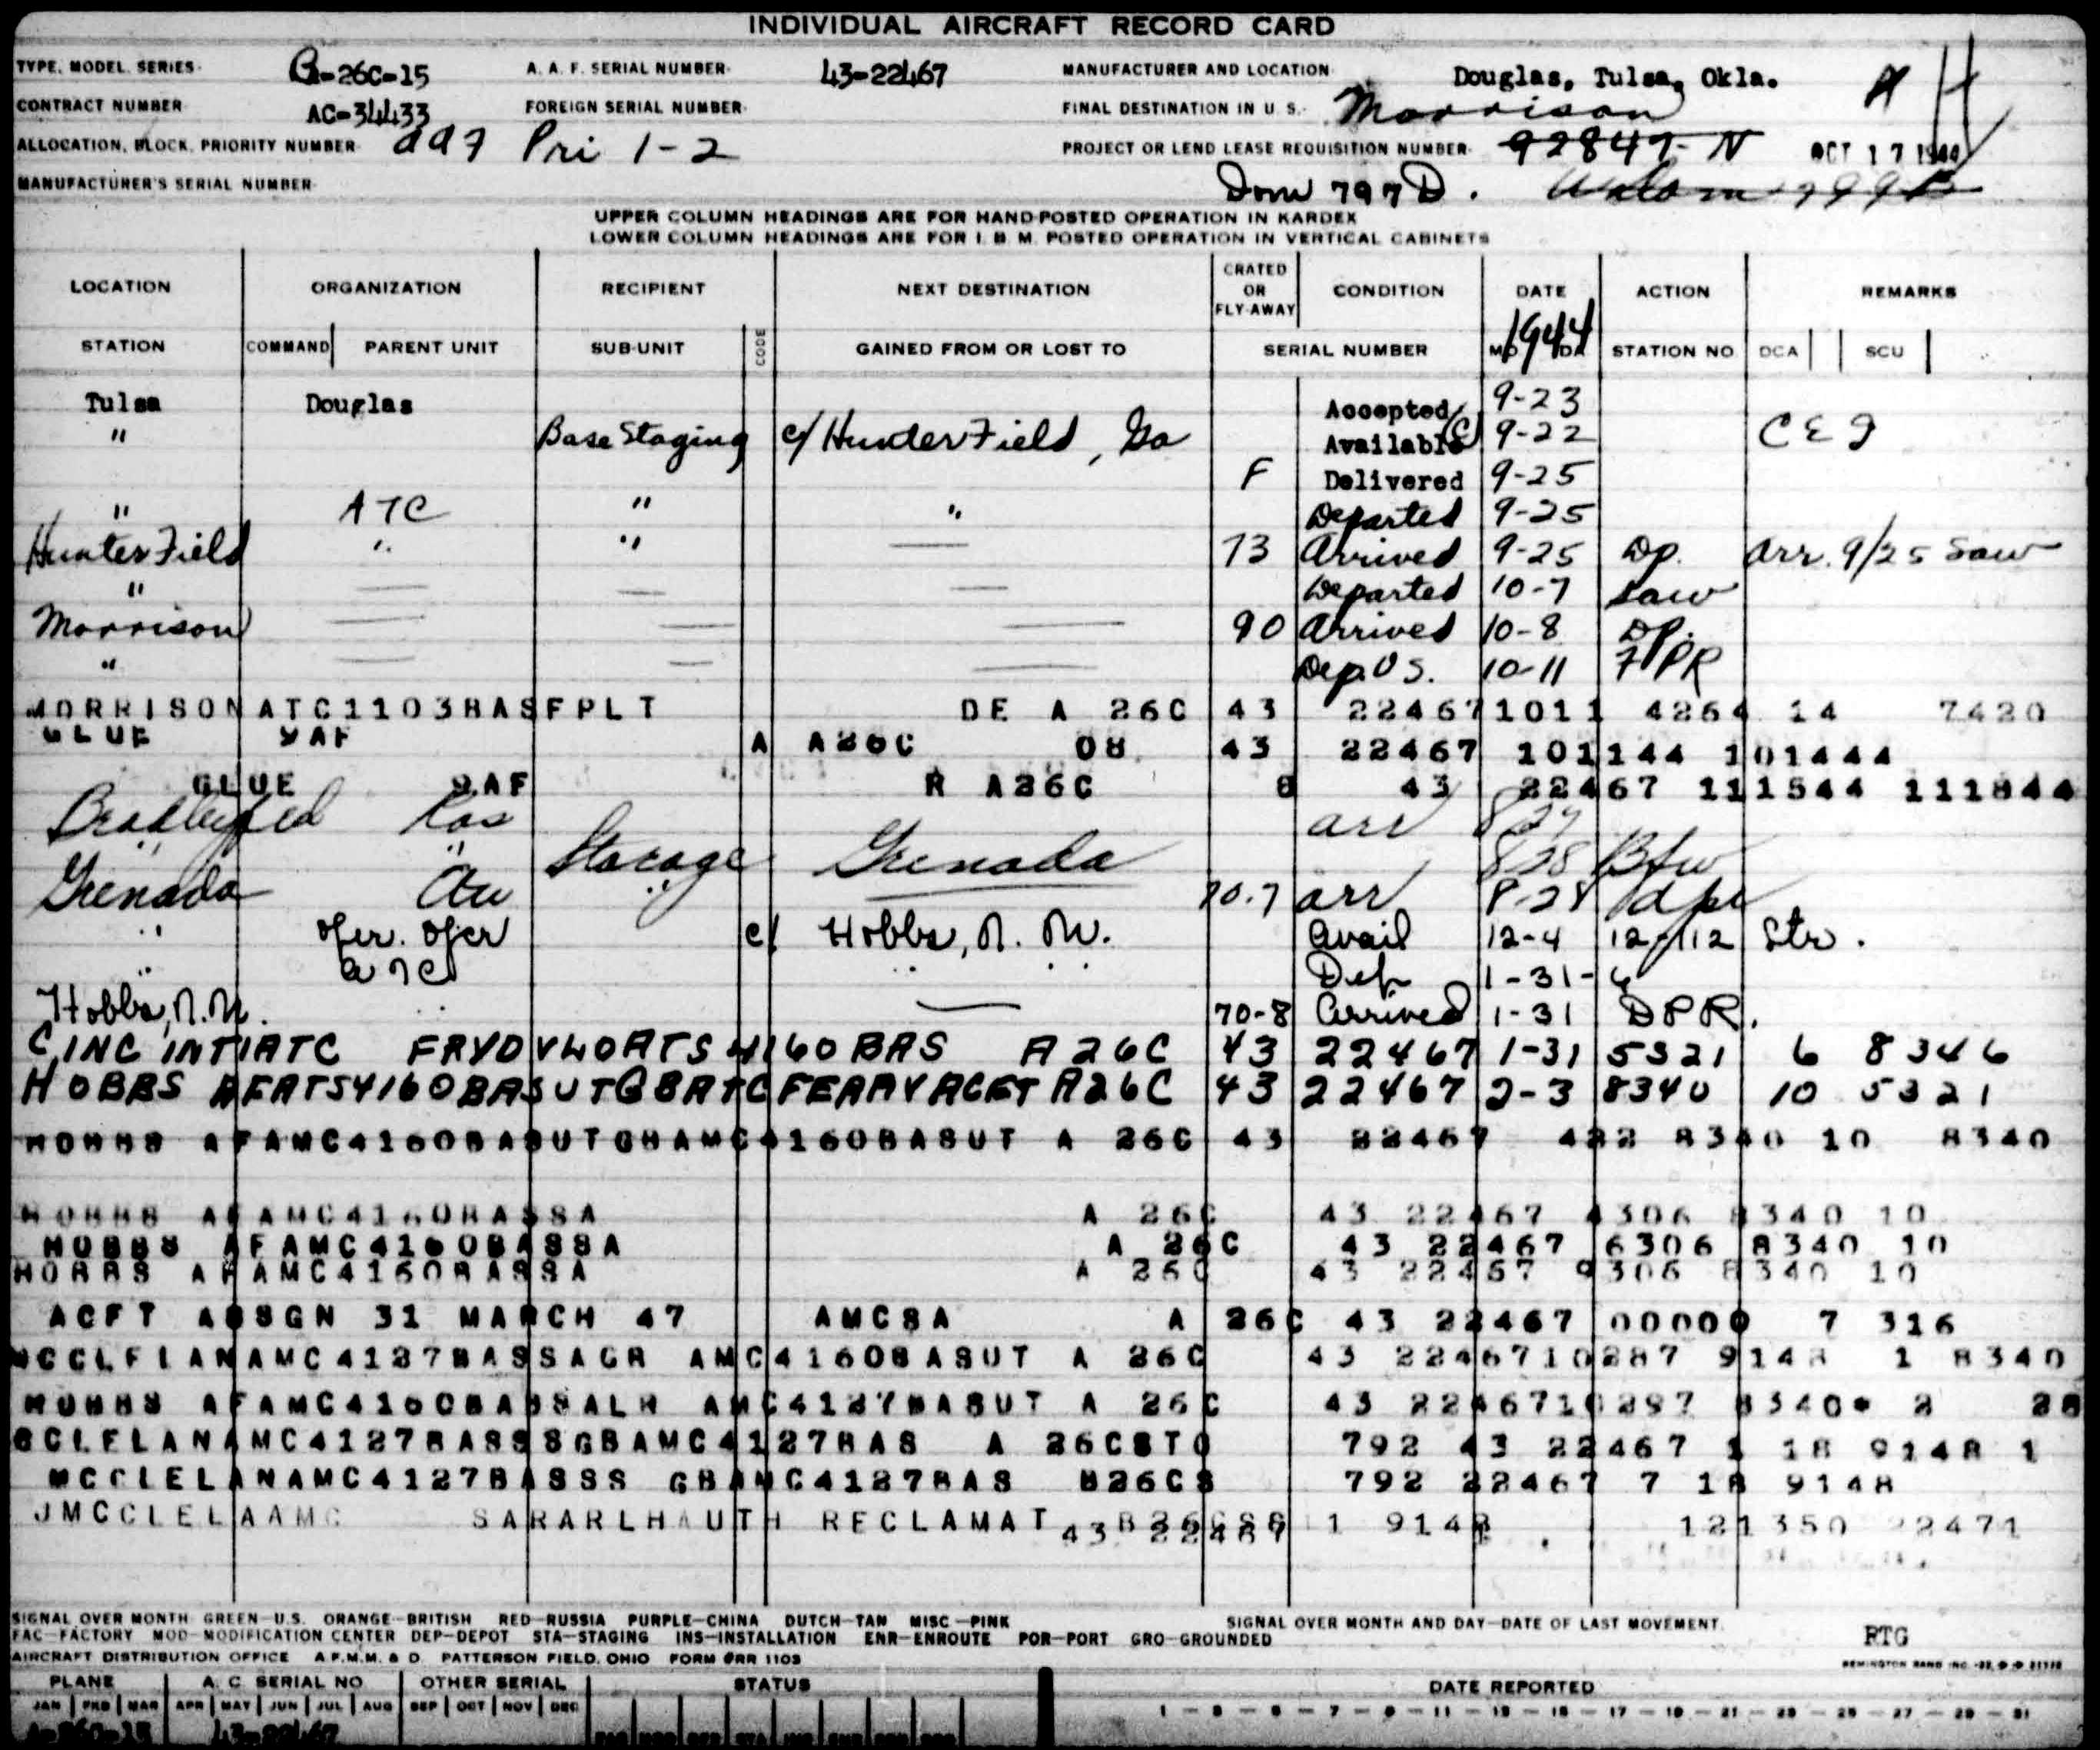 INDIVIDUAL AIRCRAFT RECORD CARD
TYPE, MODEL, SERIES- A-26C-15 A. A. F. SERIAL NUMBER- 43-22467 MANUFACTURER AND LOCATION Douglas, Tulsa, Okla.
CONTRACT NUMBER AC-34433 FOREIGN SERIAL NUMBER- FINAL DESTINATION IN U. S.- Morrison
ALLOCATION, BLOCK, PRIORITY NUMBER- Pri 1-2 PROJECT OR LEND LEASE REQUISITION NUMBER- 92847-N OCT 17 1944
MANUFACTURER'S SERIAL NUMBER- 797D.
UPPER COLUMN HEADINGS ARE FOR HAND-POSTED OPERATION IN KARDEX
LOWER COLUMN HEADINGS ARE FOR I. B. M. POSTED OPERATION IN VERTICAL CABINETS
LOCATION ORGANIZATION RECIPIENT NEXT DESTINATION CRATED OR FLY-AWAY CONDITION DATE ACTION REMARKS
1944
STATION COMMAND PARENT UNIT SUB-UNIT CODE GAINED FROM OR LOST TO SERIAL NUMBER MO DA STATION NO. DCA SCU
Tulsa Douglas Accepted 9-23
" Base Staging c/ Hunter Field, Ga Available (C) 9-22 C E
F Delivered 9-25
" ATC " " Departed 9-25
Hunter Field " " — 73 Arrived 9-25 Dp. Arr. 9/25 Saw
" — — — Departed 10-7 Saw
Morrison — — — 90 Arrived 10-8 DP.
" — — — Dep. US. 10-11 FPR
MORRISON ATC1103BASFPLT DE A 26C 43 22467 1011 4264 14 7420
GLUE 9AF A A26C 08 43 22467 101144 101444
GLUE 9AF R A26C 8 43 22467 111544 111844
Bradley Field arr 8/27
" " Storage Grenada 8/28
Grenada " 70-7 arr 8-28 dpr
" Ofcr. Ofcr c/ Hobbs, N. M. Avail 12-4 12/112 Str.
" ATC " " Dep 1-31-6
Hobbs, N.M. " — 70-8 Arrived 1-31 DPR.
C,INC INTIATC FRYDVWOATS4160BAS A26C 43 22467 1-31 5321 6 8346
HOBBS AFATS4160BASUTGBATCFERRYACFT A26C 43 22467 2-3 8340 10 5321
HOBBS AFAMC4160BASUTGBAMC4160BASUT A 26C 43 22467 422 8340 10 8340
HOBBS AFAMC4160BASSA A 26C 43 22467 4306 8340 10
HOBBS AFAMC4160BASSA A 26C 43 22467 6306 8340 10
HOBBS AFAMC4160BASSA A 26C 43 22467 9306 8340 10
ACFT ASSGN 31 MARCH 47 AMCSA A 26C 43 22467 00000 7 316
MCCLELANAMC4127BASSAGR AMC4160BASUT A 26C 43 2246710287 9148 1 8340
HOBBS AFAMC4160BASSALR AMC4127BASUT A 26C 43 2246710297 8340* 2 28
CCLELANAMC4127BASSSGBAMC4127BAS A 26CSTO 792 43 22467 1 18 9148 1
MCCLELANAMC4127BASSS GBAMC4127BAS B26CS 792 22467 7 18 9148
JMCCLELAAMC SARARLHAUTH RECLAMAT B26CSS 1 9148 121350 22471
43 22467
SIGNAL OVER MONTH GREEN—U.S. ORANGE—BRITISH RED—RUSSIA PURPLE—CHINA DUTCH—TAN MISC—PINK SIGNAL OVER MONTH AND DAY—DATE OF LAST MOVEMENT.
FAC—FACTORY MOD—MODIFICATION CENTER DEP—DEPOT STA—STAGING INS—INSTALLATION ENR—ENROUTE POR—PORT GRO—GROUNDED RTG
AIRCRAFT DISTRIBUTION OFFICE A.F.M.M. & D. PATTERSON FIELD, OHIO FORM #RR 1103 REMINGTON RAND INC.
PLANE A. C. SERIAL NO OTHER SERIAL STATUS DATE REPORTED
JAN FEB MAR APR MAY JUN JUL AUG SEP OCT NOV DEC 1 — 3 — 5 — 7 — 9 — 11 — 13 — 15 — 17 — 19 — 21 — 23 — 25 — 27 — 29 — 31
A-26C-15 43-22467